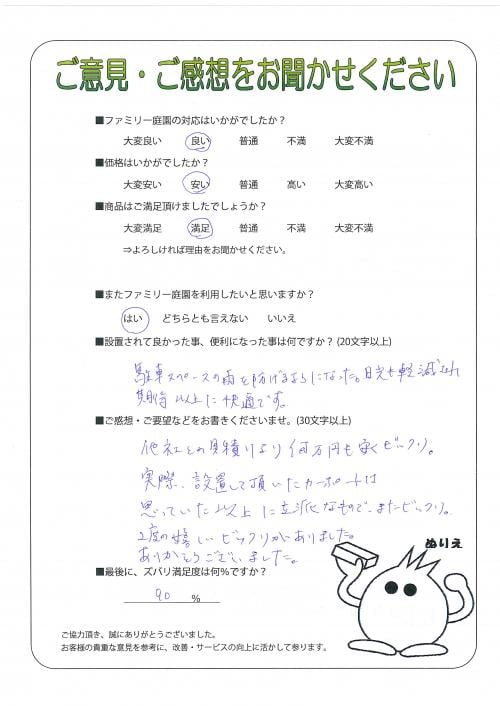 ご意見・ご感想をお聞かせください
■ファミリー庭園の対応はいかがでしたか？
大変良い 良い 普通 不満 大変不満
■価格はいかがでしたか？
大変安い 安い 普通 高い 大変高い
■商品はご満足頂けましたでしょうか？
大変満足 満足 普通 不満 大変不満
⇒よろしければ理由をお聞かせください。
■またファミリー庭園を利用したいと思いますか？
はい どちらとも言えない いいえ
■設置されて良かった事、便利になった事は何ですか？(20文字以上)
駐車スペースの雨を防げるようになった。日光も軽減され
期待以上に快適です。
■ご感想・ご要望などをお書きくださいませ。(30文字以上)
他社との見積りより何万円も安くビックリ。
実際、設置して頂いたカーポートは
思っていた以上に立派なもので、またビックリ。
2度の嬉しいビックリがありました。
ありがとうございました。
ぬりえ
■最後に、ズバリ満足度は何%ですか？
90 %
ご協力頂き、誠にありがとうございました。
お客様の貴重な意見を参考に、改善・サービスの向上に活かして参ります。